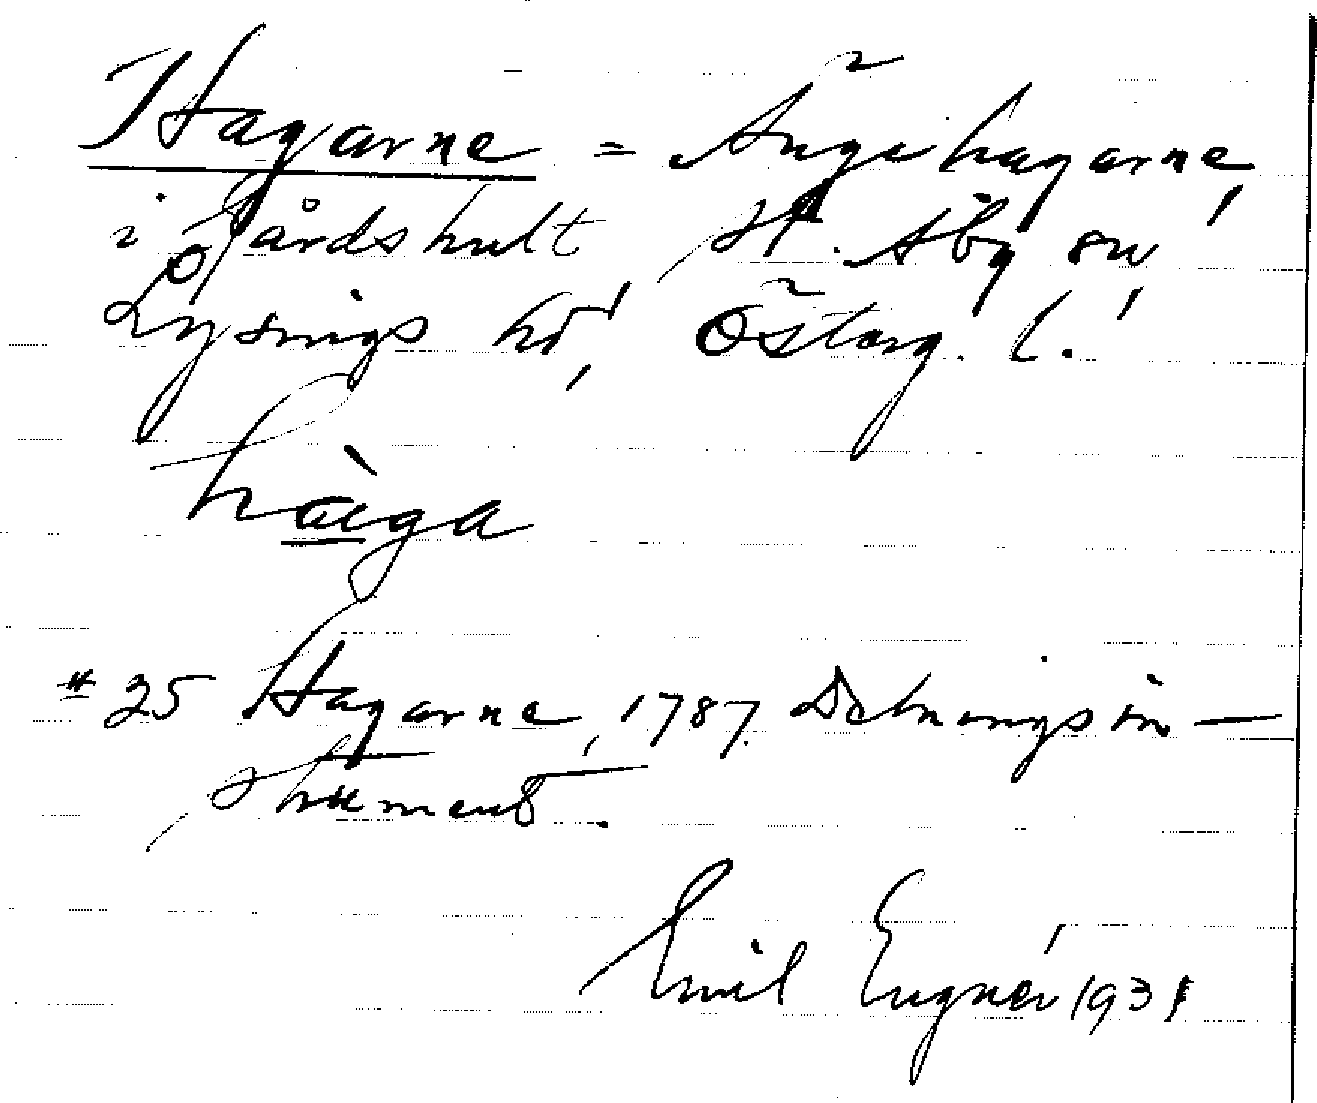 Hagarne = Ängehagarne,
i Gårdshult, St. Åby sn,
Lysings hd, Österg. l.
hàga
# 25 Hagarne, 1787. Delningsin-
strument.
Emil Engnér 1931